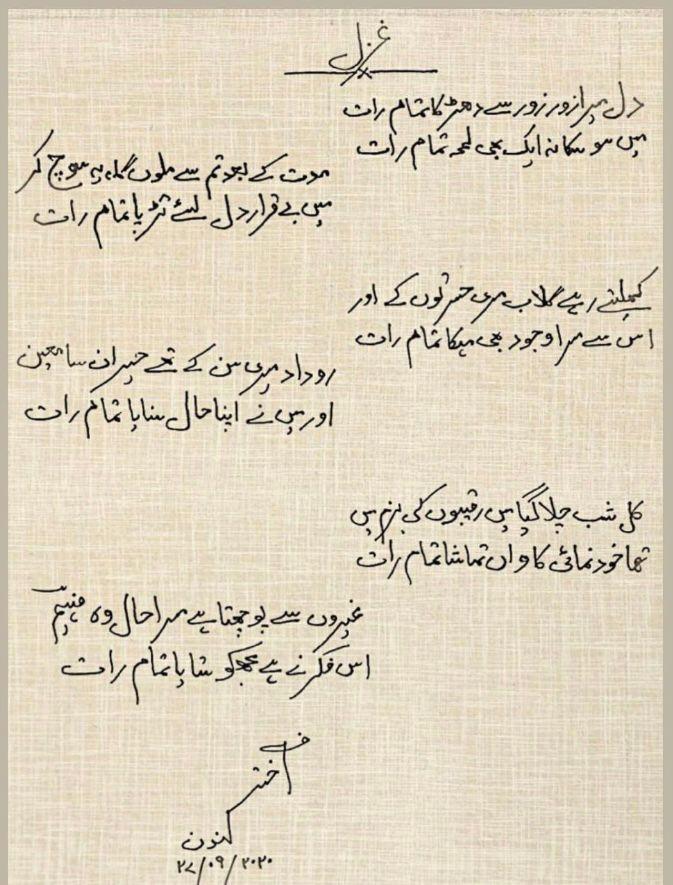 غزل
دل میرا زور زور سے دھڑکا تمام رات
میں سو سکا نہ ایک بھی لمحہ تمام رات
مدت کے بعد تم سے ملوں گا، یہ سوچ کر
میں بے قرار دل لئے تڑپا تمام رات
کھلتے رہے گلاب مری حسرتوں کے اور
اس سے مرا وجود بھی مہکا تمام رات
روداد میری سن کے تھے حیران سامعین
اور میں نے اپنا حال سنایا تمام رات
کل شب چلا گیا میں رقیبوں کی بزم میں
تھا خود نمائی کا واں تماشا تمام رات
غیروں سے پوچھتا ہے مرا حال وہ فہیم
اس فکر نے ہے مجھکو ستایا تمام رات
ف
اختر
لندن
۲۷/۰۹/۲۰۲۰